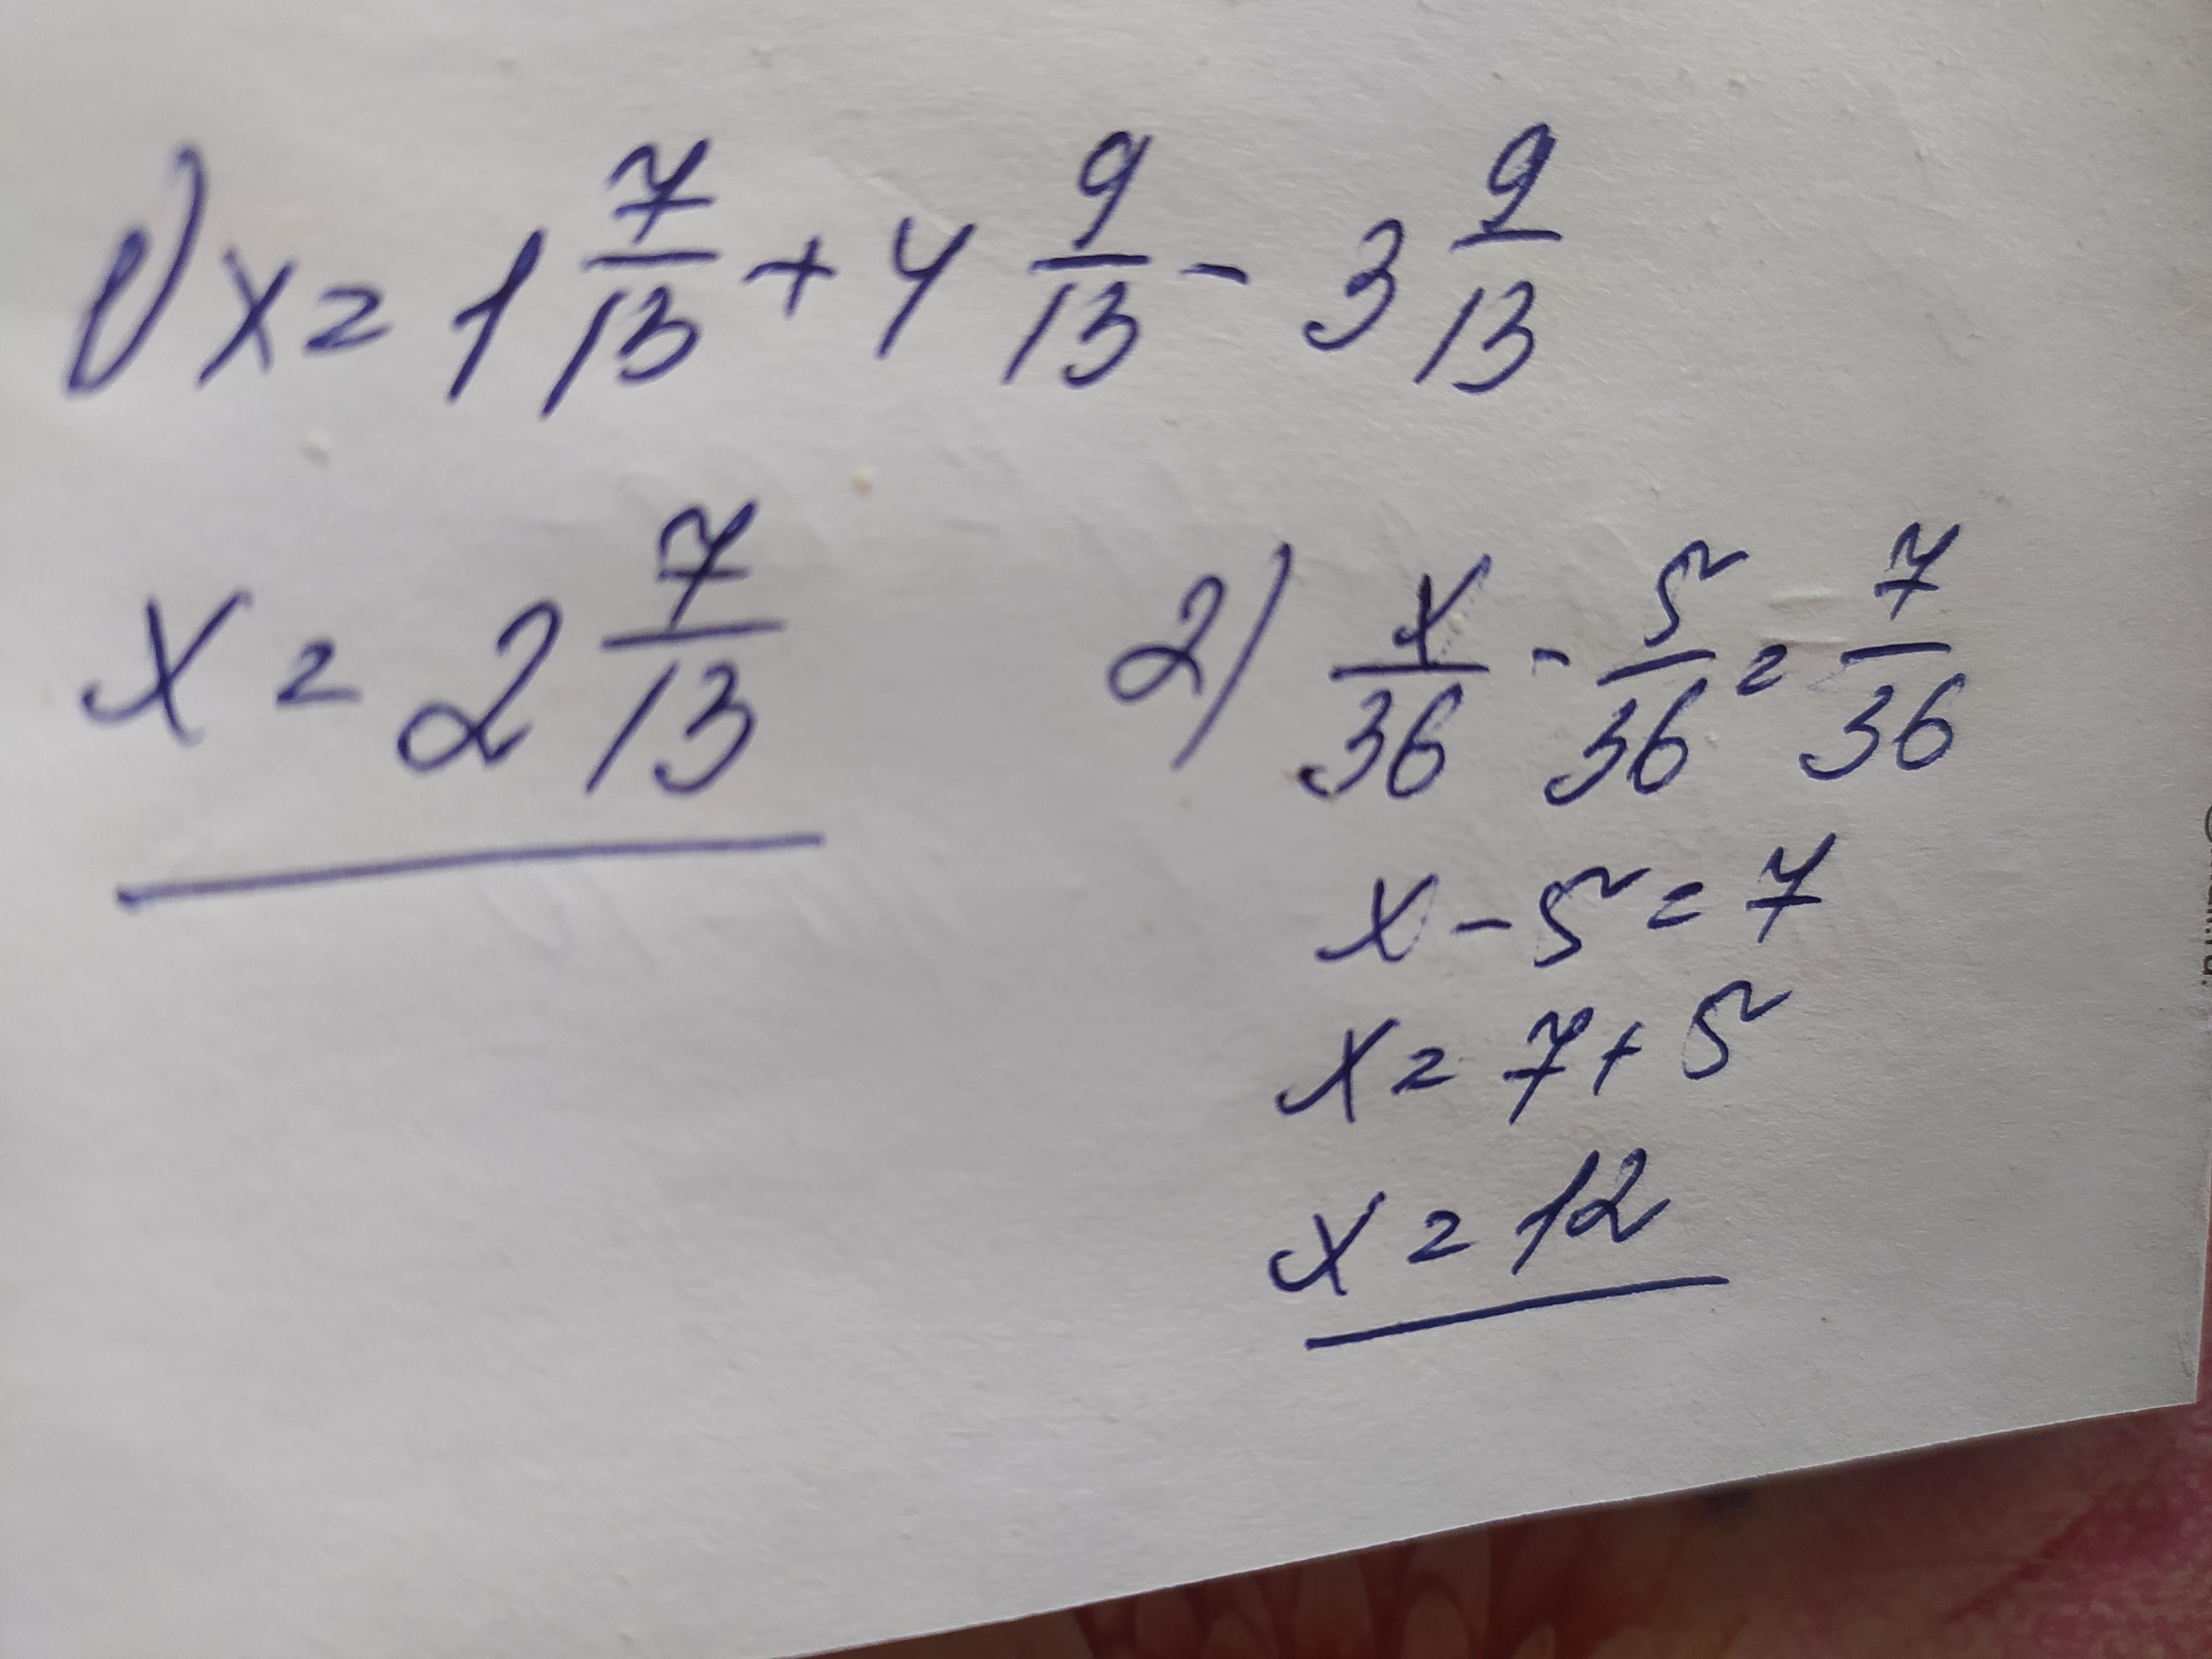 1) x = 1 7/13 + 4 9/13 - 3 9/13
x = 2 7/13
2) x/36 - 5/36 = 7/36
x - 5 = 7
x = 7 + 5
x = 12